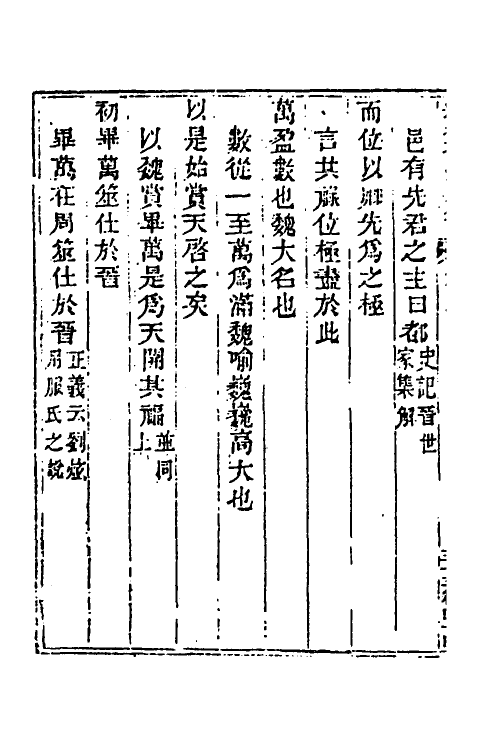 邑有先君之主曰都史記晉世家集解
而位以卿先爲之極
言其祿位極盡於此
萬盈數也魏大名也
數從一至萬爲滿魏喻巍巍高大也
以是始賞天啓之矣
以魏賞畢萬是爲天開其福並同上
初畢萬筮仕於晉
畢萬在周筮仕於晉正義云劉炫用服氏之說